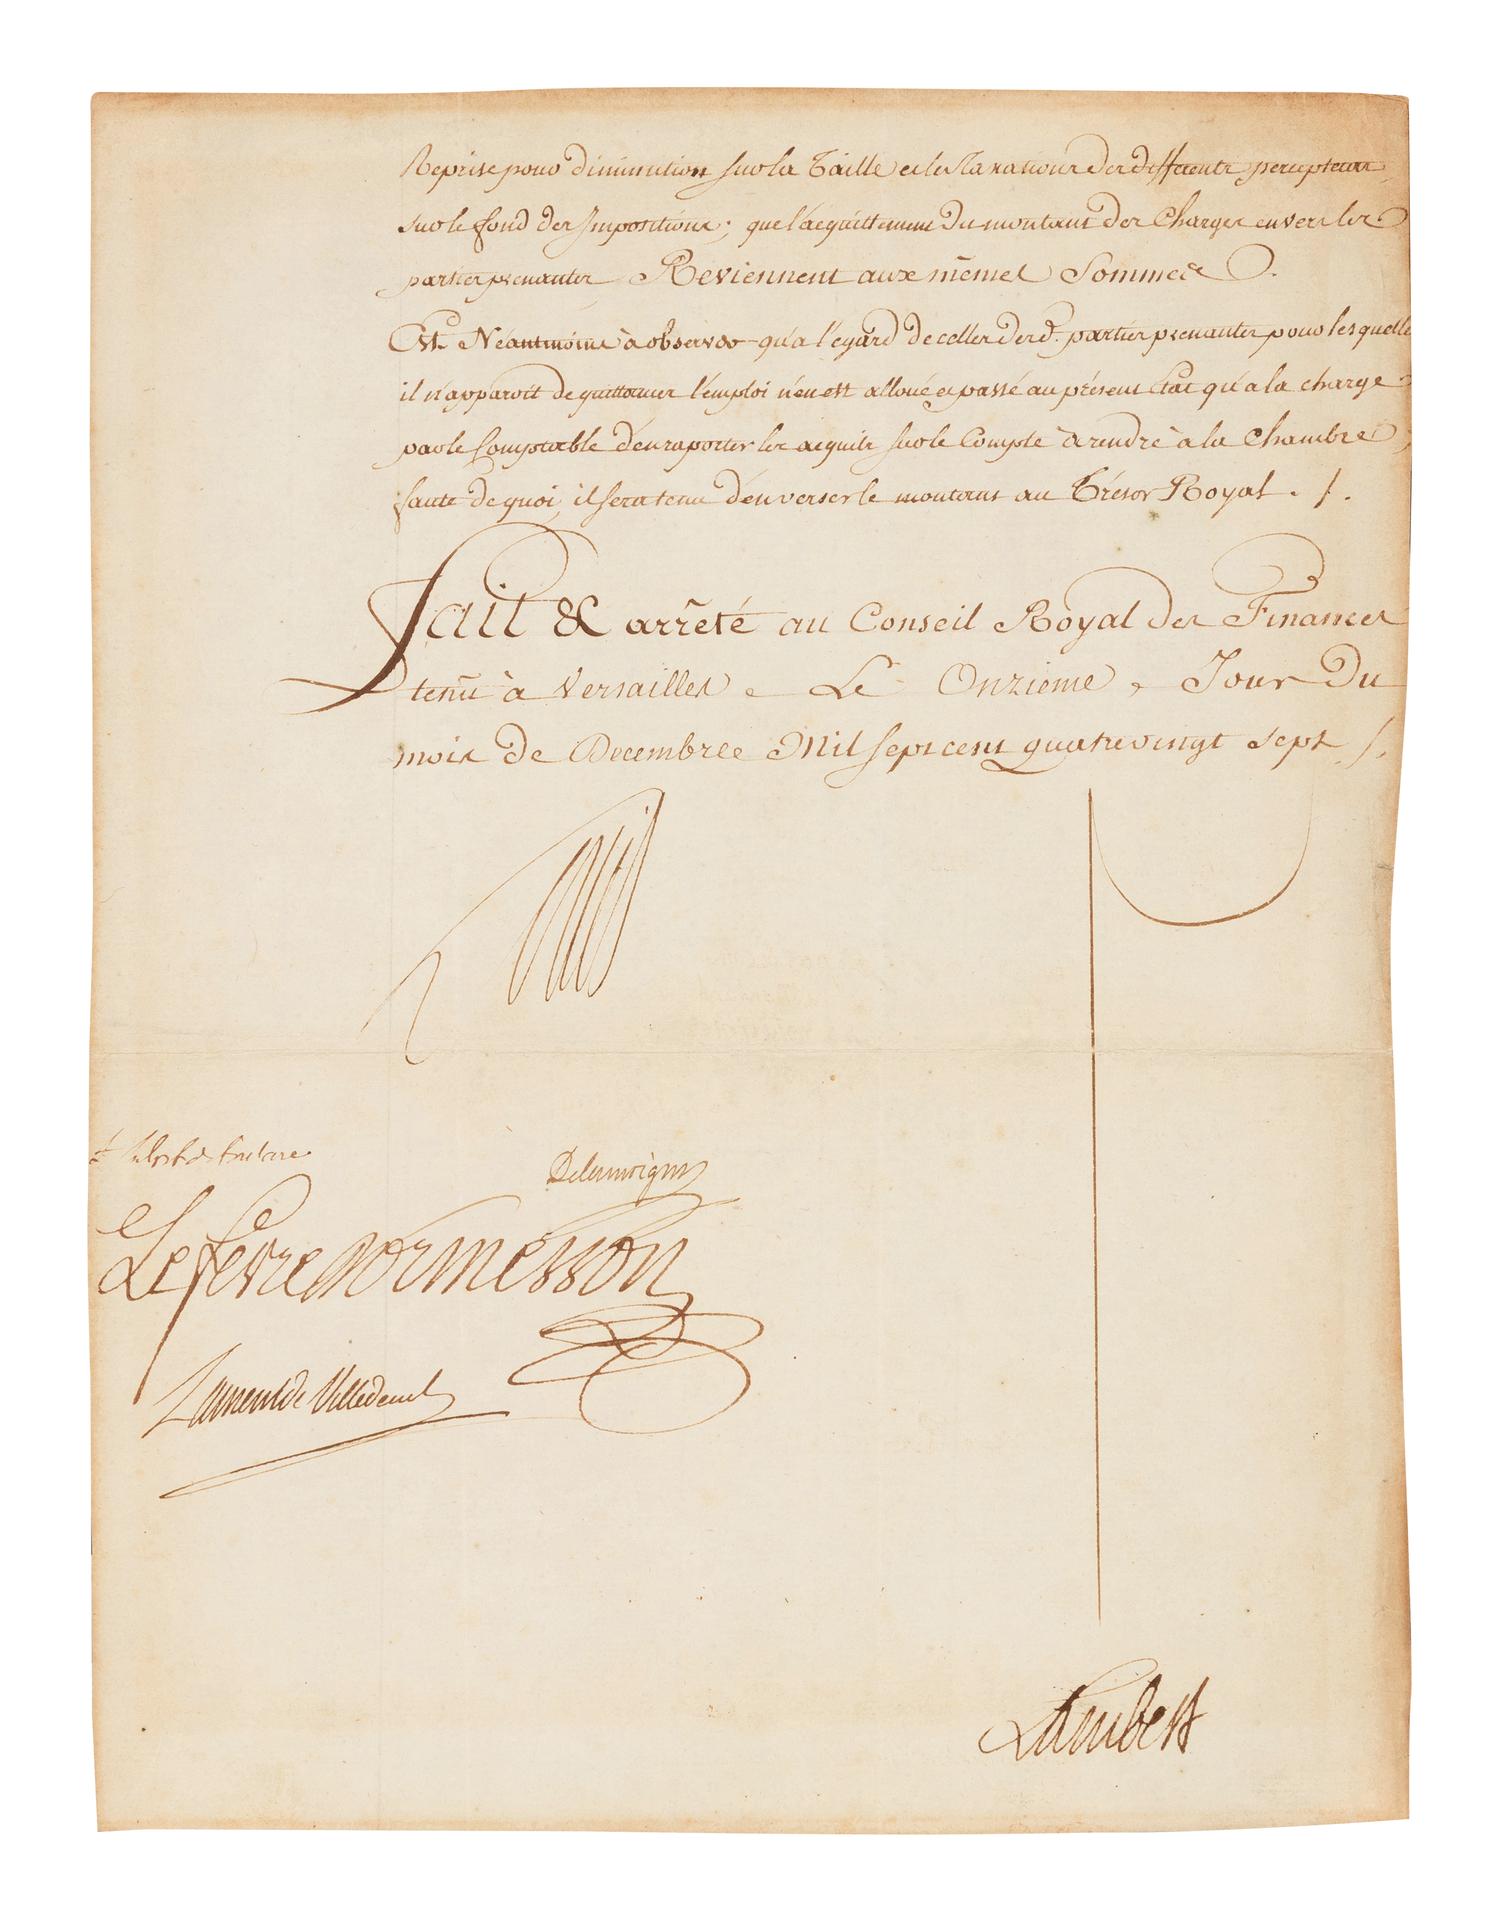 Reprise pour Diminution sur la Taille et les Taxations Des differents percepteurs
sur le fond des Impositions; que l'acquittement Du montant des Charges envers les
parties prenantes Reviennent aux mêmes Sommes.
Est Néantmoins à observer qu'à l'egard de celles desd. parties prenantes pour lesquelles
il n'apparoit de quittances l'emploi n'en est alloué et passé au présent Etat qu'a la charge
par le Comptable d'en raporter les acquits sur le Compte à rendre à la Chambre,
faute de quoi, il sera tenu d'en verser le montant au Trésor Royal ./.
Fait & arrêté au Conseil Royal des Finances
tenu à Versailles, Le Onzieme, Jour Du
mois de Decembree Mil sept cent quatre vingt sept ./.
Delamoignon
Lefevre Dormesson
Laurent de Villedeuil
Lambert